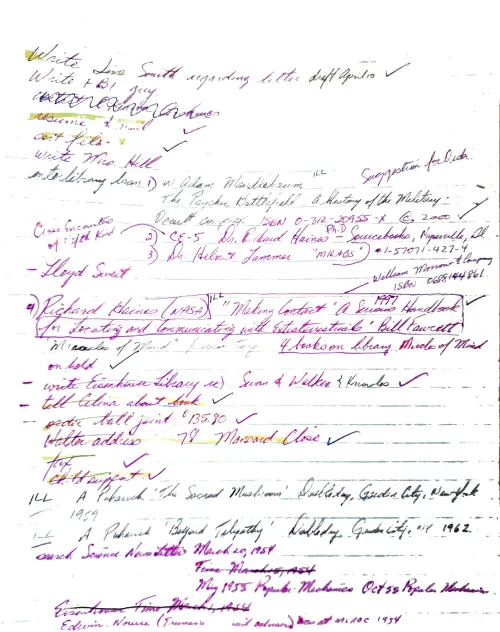 Write Lisa Smith regarding letter draft April 10 ✓
Write FBI guy
resume & mail ✓
write Mrs. Hall
inter library loan 1) W Adam Mandelbaum ILL Suggestion for Ordr.
The Psychic Battlefield A History of the Military-
Occult ISBN 0-312-20955-X © 2000 ✓
Close Encounters of: fifth Kind 2) CE-5 Dr. Richard Haines Ph.D - Sourcebooks, Naperville, Ill
3) Dr. Helmut Lammer "MILABS") 1-57071-427-4
- Lloyd William Morrow & Company
ISBN 0688144861
4) Richard Haines (NASA) ILL "Making Contact" "A Serious Handbook 1997
for Locating and Communicating with Extraterrestrials" Bill Fawcett
"Miracles of Mind" 4 books on library Miracles of Mind
on hold ✓
- write Eisenhower Library re) Swan & Walker & Knowles ✓
- tell Celina about book
order ball joint $135.80 ✓
Walter address 78 Mansard Close ✓
fax ✓
support ✓
ILL A Puharich 'The Sacred Mushroom' Doubleday, Garden City, New York
1959
ILL A Puharich 'Beyond Telepathy' Doubleday, Garden City, NY 1962
search Science News Letter March 20, 1954
Time March 15, 1954
May 1955 Popular Mechanics Oct 55 Popular Mechanics
Eisenhower Time March 1, 1954
Edwin Nourse (Truman's advisor) was at 1954